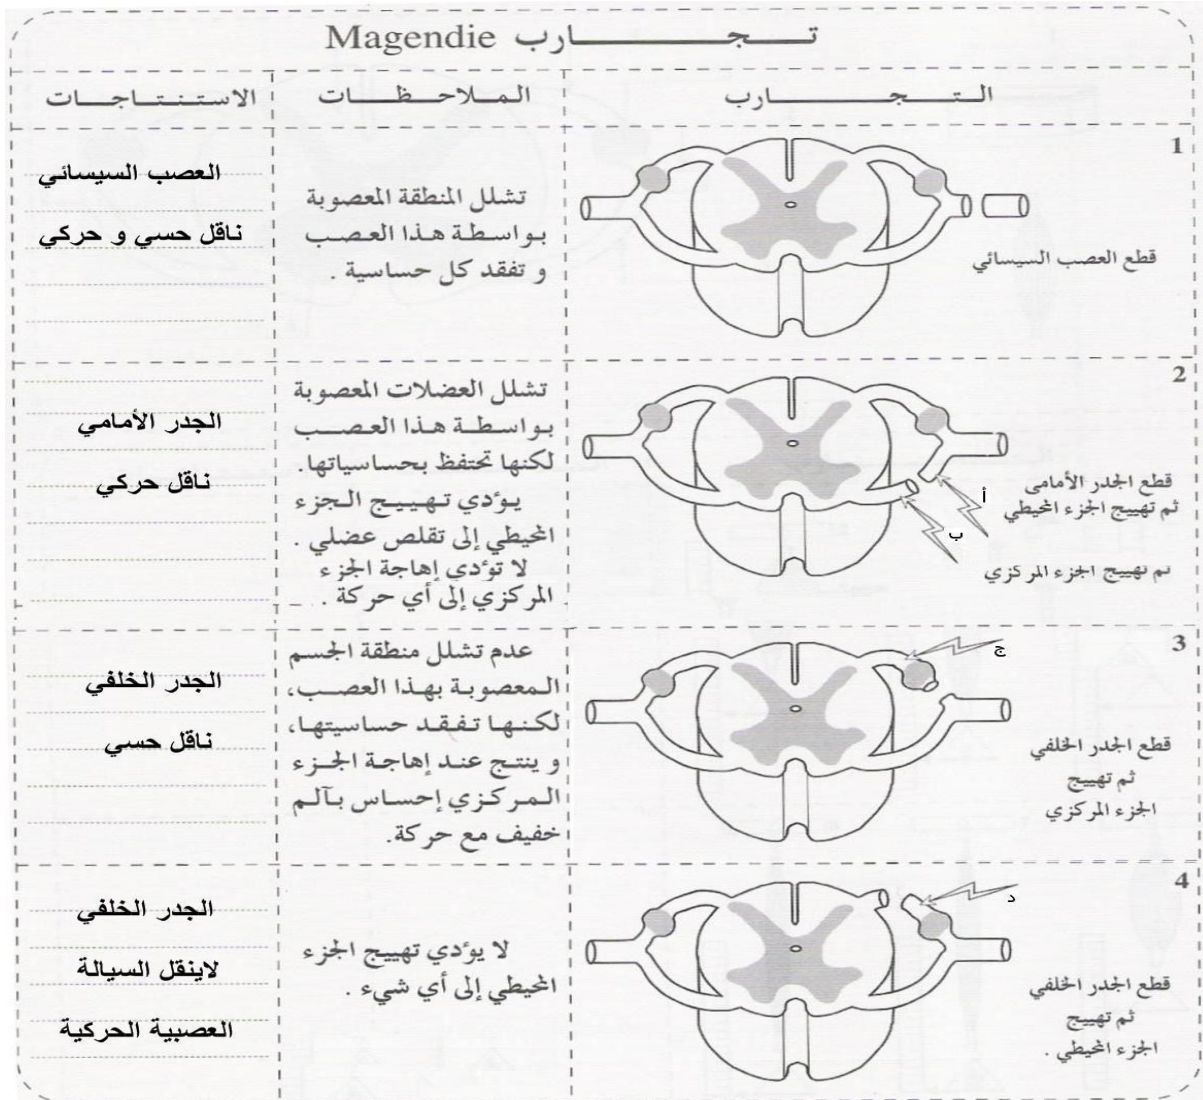 تـجـــارب Magendie
التـجـــارب
المـلاحـظـات
الاستـنـتـاجـات
1
قطع العصب السيسائي
تشلل المنطقة المعصوبة
بواسطة هذا العصب
و تفقد كل حساسية .
العصب السيسائي
ناقل حسي و حركي
2
قطع الجدر الأمامى
ثم تهييج الجزء المحيطي
ثم تهييج الجزء المركزي
أ
ب
تشلل العضلات المعصوبة
بواسطة هذا العصب
لكنها تحتفظ بحساسياتها.
يؤدي تهييج الجزء
المحيطي إلى تقلص عضلي .
لا تؤدي إهاجة الجزء
المركزي إلى أي حركة .
الجدر الأمامي
ناقل حركي
3
ج
قطع الجدر الخلفي
ثم تهييج
الجزء المركزي
عدم تشلل منطقة الجسم
المعصوبة بهذا العصب،
لكنها تفقد حساسيتها،
و ينتج عند إهاجة الجزء
المركزي إحساس بآلم
خفيف مع حركة.
الجدر الخلفي
ناقل حسي
4
د
قطع الجدر الخلفي
ثم تهييج
الجزء المحيطي .
لا يؤدي تهييج الجزء
المحيطي إلى أي شيء .
الجدر الخلفي
لاينقل السيالة
العصبية الحركية